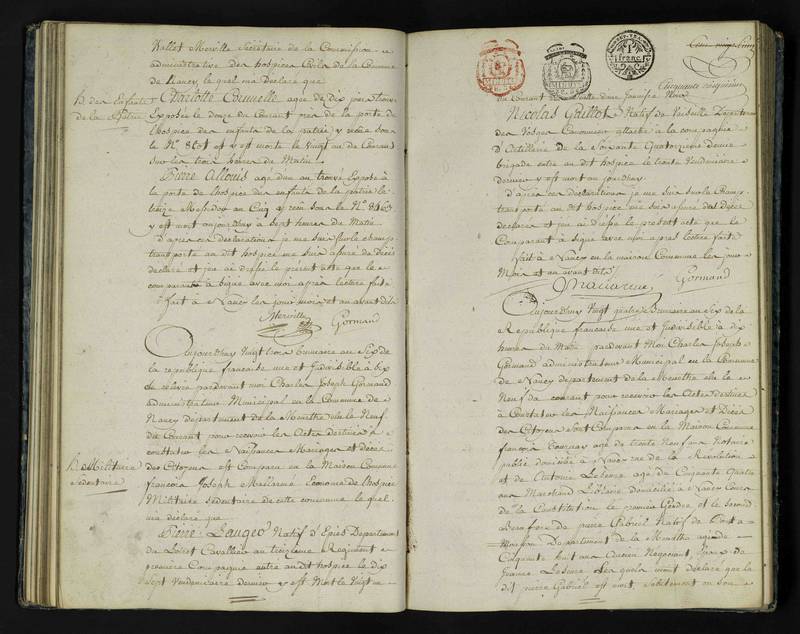 Vallet Merville Secrétaire de la Commission
administrative des hospices Civils de la Commune
de Nancy lequel m'a déclaré que
h. des Enfants
de la Patrie
Charlotte agée de Dix jours trouvée
Exposée le douze du Courant pres de la porte de
l'hospice des enfants de la patrie y reçue sous
le N°. 8601 et y est morte le vingt un de Courant
sur les trois heures de Matin
Pierre Allouis agé d'un an trouvé Exposé à
la porte de l'hospice des enfants de la patrie le
treize Messidor an Cinq y reçu sous le N°.
y est mort aujourd'huy à sept heures du Matin
d'après ces déclarations je me suis sur le champ
transporté au dit hospice me suis assuré de Décès
declaré et jai ai Dressé le présent acte que le
comparant à Signé avec moi apres lecture faite
fait à Nancy les jour mois et an avant dits
Merville Gormand
Aujourd'huy Vingt trois brumaire an Six de
la republique française une et Indivisible à Six
de relevée pardevant moi Charles Joseph Gormand
administrateur Municipal en la Commune de
Nancy département de la Meurthe élu le Neuf
du Courant pour recevoir les Actes destinés à
constater les Naissances Mariages et décès
des Citoyens est Comparu en la Maison Commune
h. Militaire
sédentaire
françois Joseph Econome de l'hospice
Militaire sédentaire de cette commune lequel
m'a déclaré que
Pierre Laugeo Natif d' Département
du Loiret Cavallier au treizieme Regiment
premiere Compagnie entré au dit hospice le dix
Sept Vendemiaire dernier y est Mort le Vingt un
1 franc
Cinquante cinquieme
du Courant
Nicolas Natif de Département
des Vosges Canonnier attaché a la compagnie
d'Artillerie de la Soixante Quatorzieme demie
brigade entré au dit hospice le trente Vendemiaire
dernier y est mort aujourdhuy
d'apres ces déclarations je me suis sur le Champ
transporté au dit hospice me suis assuré des Décès
déclarés et jai ai Dressé le présent acte que le
Comparant à Signé avec moi apres lecture faite
fait à Nancy en la maison Commune les jour
Mois et an avant dits
Gormand
Aujourd'huy Vingt quatre Brumaire an Six de la
République française une et Indivisible à dix
heures du Matin pardevant Moi Charles Joseph
Gormand administrateur Municipal en la Commune
de Nancy département de la Meurthe élu le
Neuf du courant pour recevoir les Actes destinés
à Constater les Naissances Mariages et Décès
des Citoyens Sont Comparus en la Maison Commune
françois agé de trente Neuf ans Notaire
public domicilié à Nancy rue de la Révolution
et de Antoine agé de Cinquante Quatre
ans domicilié à Nancy Cours
de la Constitution le premier Gendre et le Second
Beaufrere de pierre Gabriel Natif de Pont a
Mousson Departement de la Meurthe agé de
Cinquante huit ans Negociant Epoux de
Jeanne Lesquels m'ont declaré que le
dit pierre Gabriel est mort subitement en son